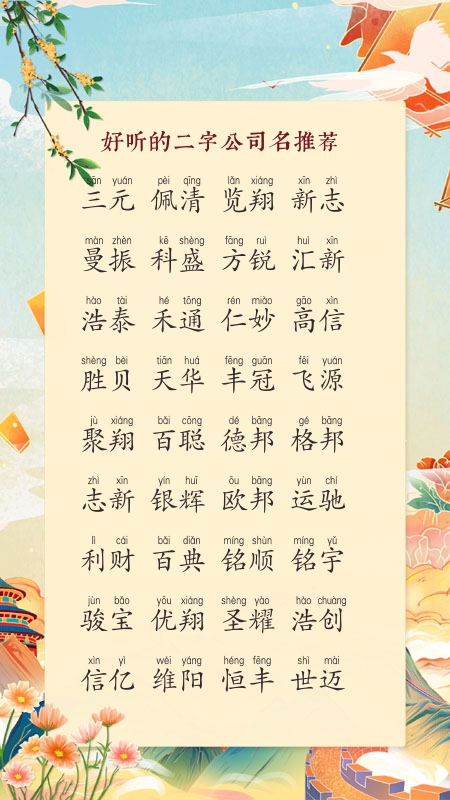 好听的二字公司名推荐
sān yuán pèi qīng lǎn xiáng xīn zhì
三元 佩清 览翔 新志
màn zhèn kē shèng fāng ruì huì xīn
曼振 科盛 方锐 汇新
hào tài hé tōng rén miào gāo xìn
浩泰 禾通 仁妙 高信
shèng bèi tiān huá fēng guān fēi yuán
胜贝 天华 丰冠 飞源
jù xiáng bǎi cōng dé bāng gé bāng
聚翔 百聪 德邦 格邦
zhì xīn yín huī ōu bāng yùn chí
志新 银辉 欧邦 运驰
lì cái bǎi diǎn míng shùn míng yǔ
利财 百典 铭顺 铭宇
jùn bǎo yōu xiáng shèng yào hào chuàng
骏宝 优翔 圣耀 浩创
xìn yì wéi yáng héng fēng shì mài
信亿 维阳 恒丰 世迈